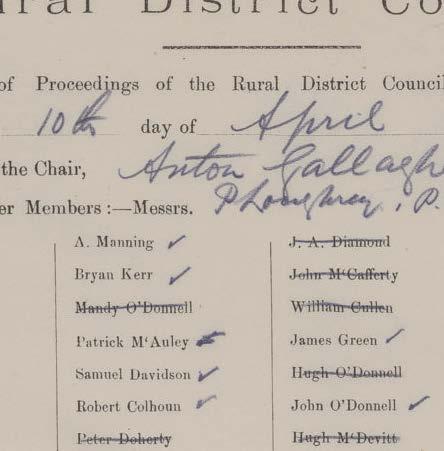 Rural District Co
of Proceedings of the Rural District Council
10th day of April
the Chair, Anton Gallaghe
er Members :—Messrs. P Loughrey, P.
A. Manning ✓
Bryan Kerr ✓
Mandy O'Donnell
Patrick M'Auley ✓
Samuel Davidson ✓
Robert Colhoun ✓
Peter Doherty
J. A. Diamond
John M'Cafferty
William Cullen
James Green ✓
Hugh O'Donnell
John O'Donnell ✓
Hugh M'Devitt